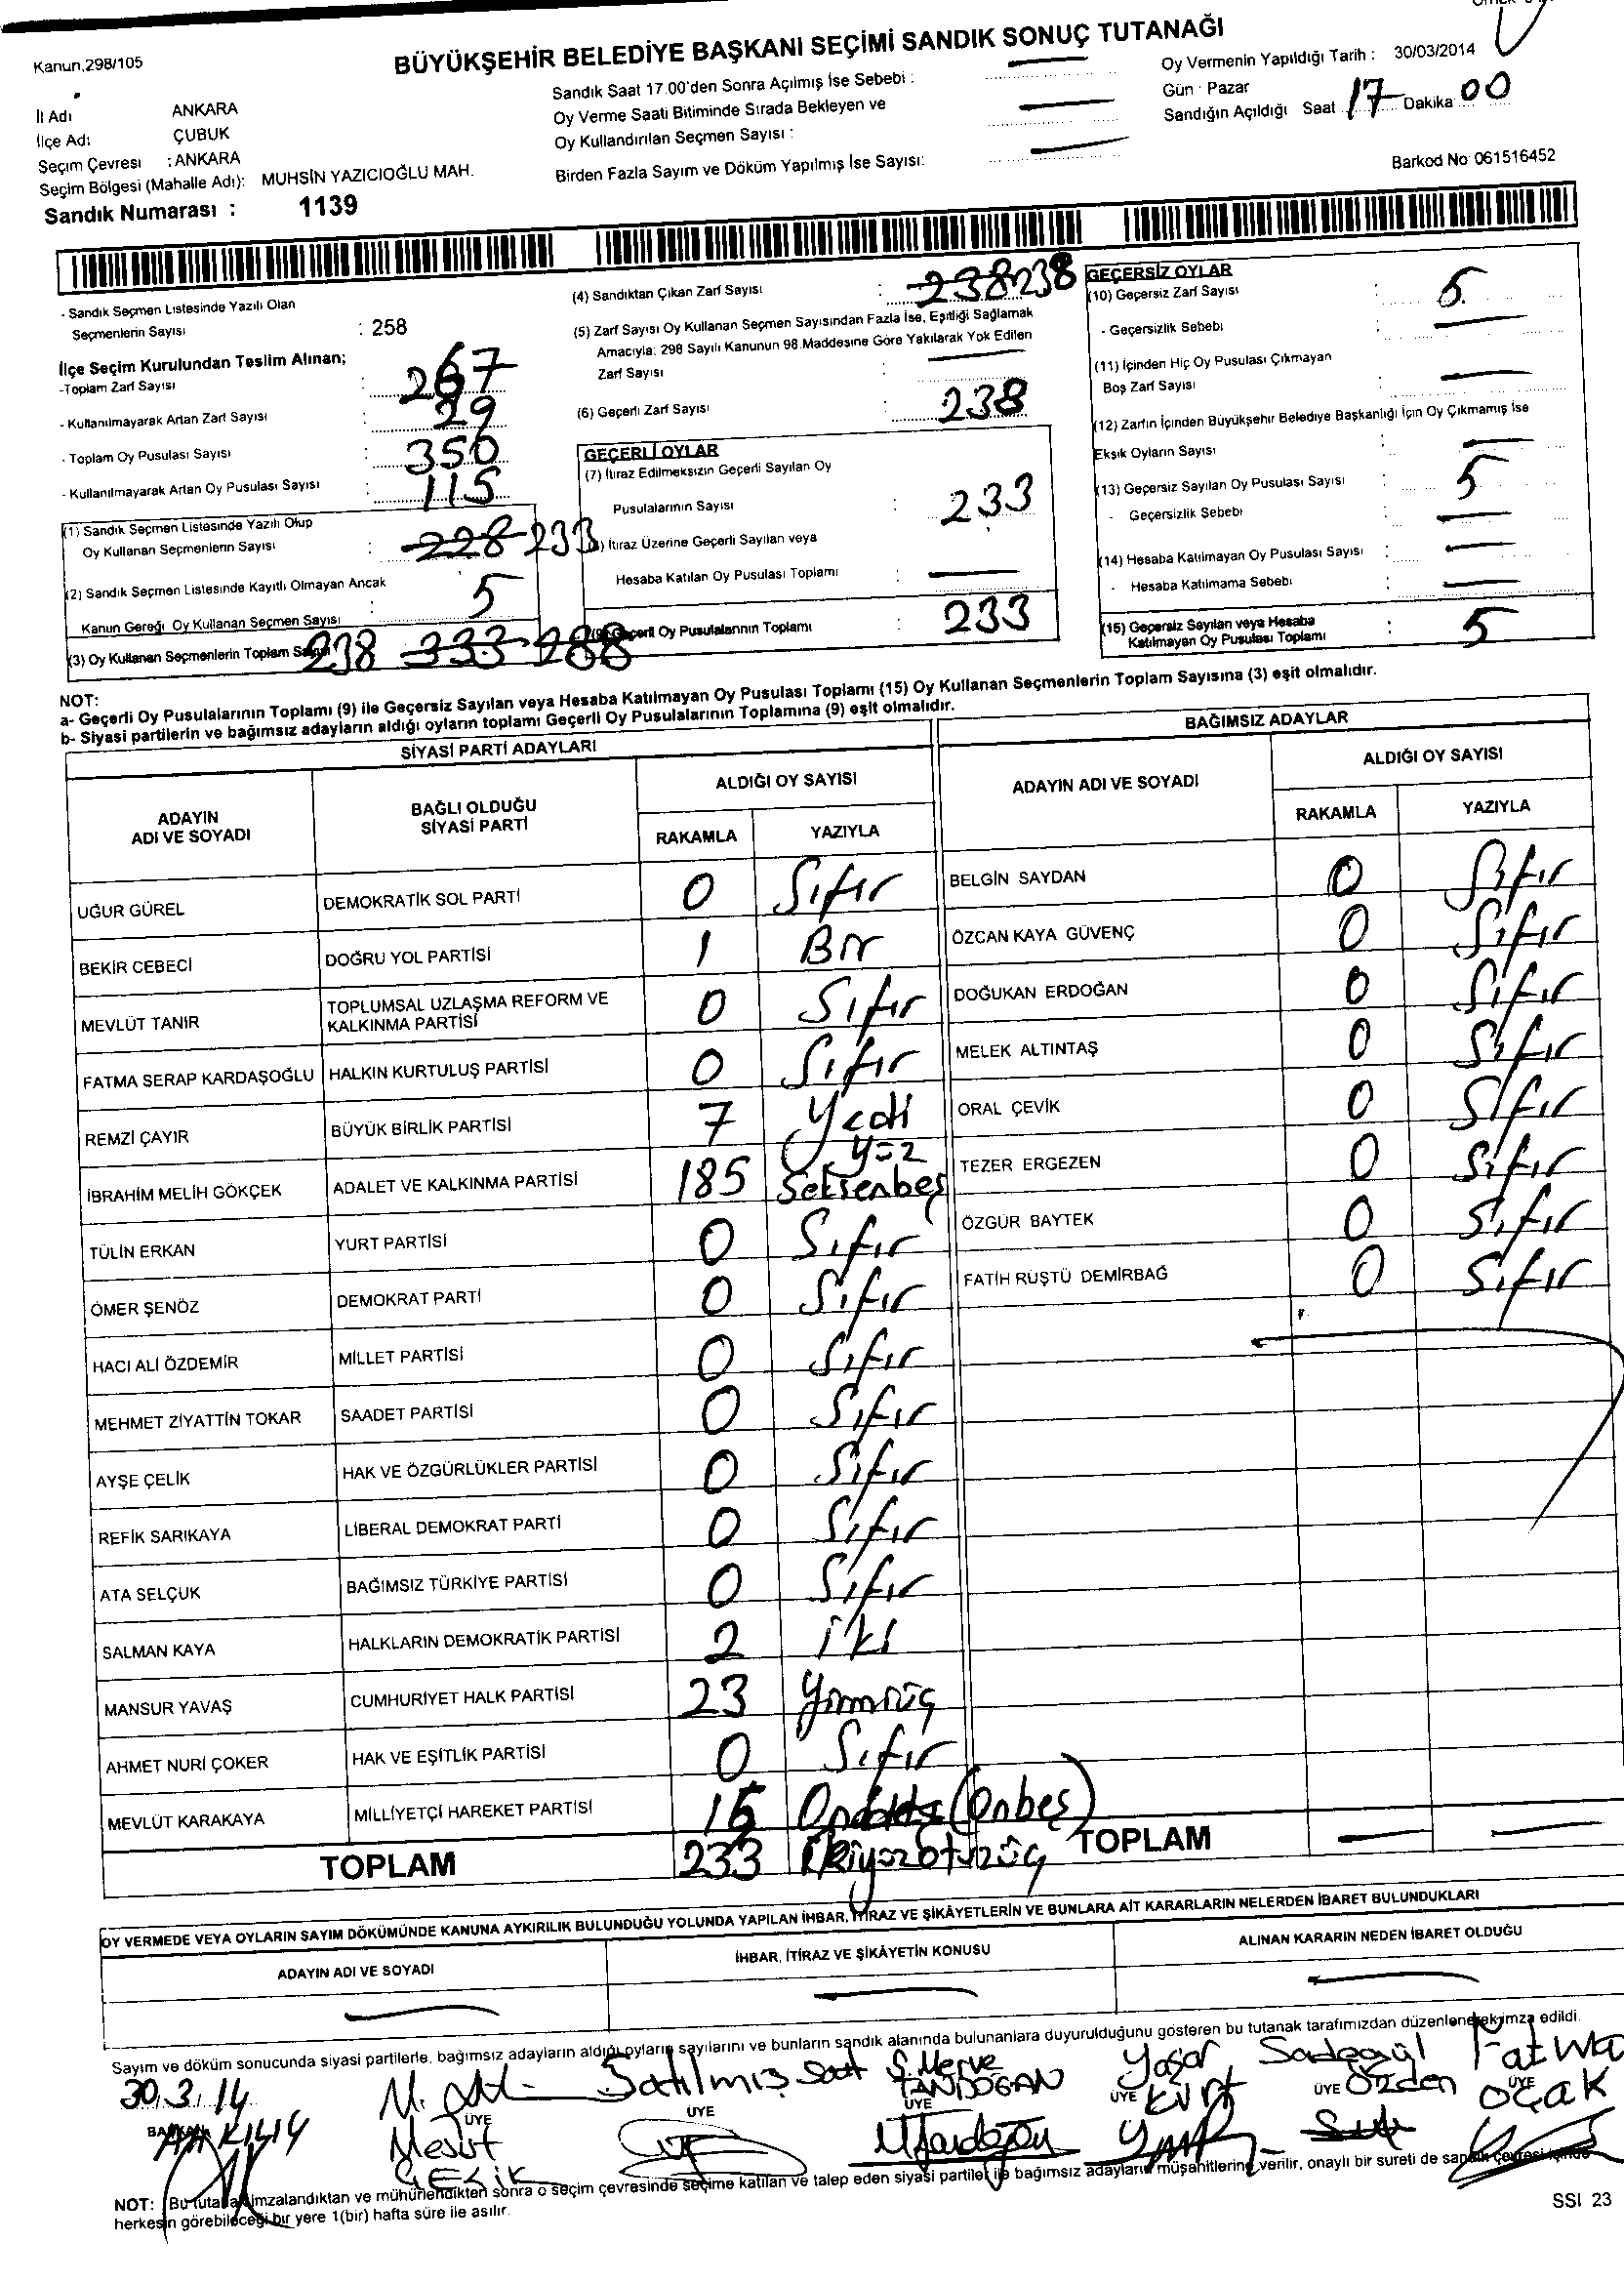 Kanun,298/105
BÜYÜKŞEHİR BELEDİYE BAŞKANI SEÇİMİ SANDIK SONUÇ TUTANAĞI
İl Adı ANKARA
İlçe Adı ÇUBUK
Seçim Çevresi : ANKARA
Seçim Bölgesi (Mahalle Adı): MUHSİN YAZICIOĞLU MAH.
Sandık Numarası : 1139
Sandık Saat 17.00'den Sonra Açılmış İse Sebebi :
Oy Verme Saati Bitiminde Sırada Bekleyen ve
Oy Kullandırılan Seçmen Sayısı :
Birden Fazla Sayım ve Döküm Yapılmış İse Sayısı:
Oy Vermenin Yapıldığı Tarih : 30/03/2014
Gün : Pazar
Sandığın Açıldığı Saat 17 Dakika 00
Barkod No 061516452
- Sandık Seçmen Listesinde Yazılı Olan
Seçmenlerin Sayısı : 258
İlçe Seçim Kurulundan Teslim Alınan;
-Toplam Zarf Sayısı : 267
- Kullanılmayarak Artan Zarf Sayısı : 29
- Toplam Oy Pusulası Sayısı : 350
- Kullanılmayarak Artan Oy Pusulası Sayısı : 115
(1) Sandık Seçmen Listesinde Yazılı Olup
Oy Kullanan Seçmenlerin Sayısı : 228 233
(2) Sandık Seçmen Listesinde Kayıtlı Olmayan Ancak
Kanun Gereği Oy Kullanan Seçmen Sayısı : 5
(3) Oy Kullanan Seçmenlerin Toplam Sayısı 238 333 288
(4) Sandıktan Çıkan Zarf Sayısı : 238 238
(5) Zarf Sayısı Oy Kullanan Seçmen Sayısından Fazla İse, Eşitliği Sağlamak
Amacıyla; 298 Sayılı Kanunun 98.Maddesine Göre Yakılarak Yok Edilen
Zarf Sayısı :
(6) Geçerli Zarf Sayısı : 238
GEÇERLİ OYLAR
(7) İtiraz Edilmeksizin Geçerli Sayılan Oy
Pusulalarının Sayısı : 233
(8) İtiraz Üzerine Geçerli Sayılan veya
Hesaba Katılan Oy Pusulası Toplamı :
(9) Geçerli Oy Pusulalarının Toplamı : 233
GEÇERSİZ OYLAR
(10) Geçersiz Zarf Sayısı : 5
- Geçersizlik Sebebi :
(11) İçinden Hiç Oy Pusulası Çıkmayan
Boş Zarf Sayısı :
(12) Zarfın İçinden Büyükşehir Belediye Başkanlığı İçin Oy Çıkmamış İse
Eksik Oyların Sayısı :
(13) Geçersiz Sayılan Oy Pusulası Sayısı : 5
- Geçersizlik Sebebi :
(14) Hesaba Katılmayan Oy Pusulası Sayısı :
- Hesaba Katılmama Sebebi :
(15) Geçersiz Sayılan veya Hesaba
Katılmayan Oy Pusulası Toplamı : 5
NOT:
a- Geçerli Oy Pusulalarının Toplamı (9) ile Geçersiz Sayılan veya Hesaba Katılmayan Oy Pusulası Toplamı (15) Oy Kullanan Seçmenlerin Toplam Sayısına (3) eşit olmalıdır.
b- Siyasi partilerin ve bağımsız adayların aldığı oyların toplamı Geçerli Oy Pusulalarının Toplamına (9) eşit olmalıdır.
SİYASİ PARTİ ADAYLARI
ADAYIN ADI VE SOYADI BAĞLI OLDUĞU SİYASİ PARTİ ALDIĞI OY SAYISI
RAKAMLA YAZIYLA
UĞUR GÜREL DEMOKRATİK SOL PARTİ 0 Sıfır
BEKİR CEBECİ DOĞRU YOL PARTİSİ 1 Bir
MEVLÜT TANIR TOPLUMSAL UZLAŞMA REFORM VE KALKINMA PARTİSİ 0 Sıfır
FATMA SERAP KARDAŞOĞLU HALKIN KURTULUŞ PARTİSİ 0 Sıfır
REMZİ ÇAYIR BÜYÜK BİRLİK PARTİSİ 7 Yedi
İBRAHİM MELİH GÖKÇEK ADALET VE KALKINMA PARTİSİ 185 yüz Seksenbeş
TÜLİN ERKAN YURT PARTİSİ 0 Sıfır
ÖMER ŞENÖZ DEMOKRAT PARTİ 0 Sıfır
HACI ALİ ÖZDEMİR MİLLET PARTİSİ 0 Sıfır
MEHMET ZİYATTİN TOKAR SAADET PARTİSİ 0 Sıfır
AYŞE ÇELİK HAK VE ÖZGÜRLÜKLER PARTİSİ 0 Sıfır
REFİK SARIKAYA LİBERAL DEMOKRAT PARTİ 0 Sıfır
ATA SELÇUK BAĞIMSIZ TÜRKİYE PARTİSİ 0 Sıfır
SALMAN KAYA HALKLARIN DEMOKRATİK PARTİSİ 2 iki
MANSUR YAVAŞ CUMHURİYET HALK PARTİSİ 23 Yirmiüç
AHMET NURİ ÇOKER HAK VE EŞİTLİK PARTİSİ 0 Sıfır
MEVLÜT KARAKAYA MİLLİYETÇİ HAREKET PARTİSİ 15 (Onbeş)
TOPLAM 233 İkiyüzotuzüç
BAĞIMSIZ ADAYLAR
ADAYIN ADI VE SOYADI ALDIĞI OY SAYISI
RAKAMLA YAZIYLA
BELGİN SAYDAN 0 Sıfır
ÖZCAN KAYA GÜVENÇ 0 Sıfır
DOĞUKAN ERDOĞAN 0 Sıfır
MELEK ALTINTAŞ 0 Sıfır
ORAL ÇEVİK 0 Sıfır
TEZER ERGEZEN 0 Sıfır
ÖZGÜR BAYTEK 0 Sıfır
FATİH RÜŞTÜ DEMİRBAĞ 0 Sıfır
TOPLAM
OY VERMEDE VEYA OYLARIN SAYIM DÖKÜMÜNDE KANUNA AYKIRILIK BULUNDUĞU YOLUNDA YAPILAN İHBAR, İTİRAZ VE ŞİKÂYETLERİN VE BUNLARA AİT KARARLARIN NELERDEN İBARET BULUNDUKLARI
ADAYIN ADI VE SOYADI İHBAR, İTİRAZ VE ŞİKÂYETİN KONUSU ALINAN KARARIN NEDEN İBARET OLDUĞU
Sayım ve döküm sonucunda siyasi partilerle, bağımsız adayların aldığı oyların sayılarını ve bunların sandık alanında bulunanlara duyurulduğunu gösteren bu tutanak tarafımızdan düzenlenerek imza edildi.
30.3.14
BAŞKAN ÜYE ÜYE ÜYE ÜYE ÜYE ÜYE
Mesut
Satılmış
Ş.Merve TANDOĞAN
Yaşar KURT
Sadegül Özden
Fatma OÇAK
NOT: Bu tutanak imzalandıktan ve mühürlendikten sonra o seçim çevresinde seçime katılan ve talep eden siyasi partiler ile bağımsız adayların müşahitlerine verilir, onaylı bir sureti de sandık çevresi içinde
herkesin görebileceği bir yere 1(bir) hafta süre ile asılır.
SSI 23